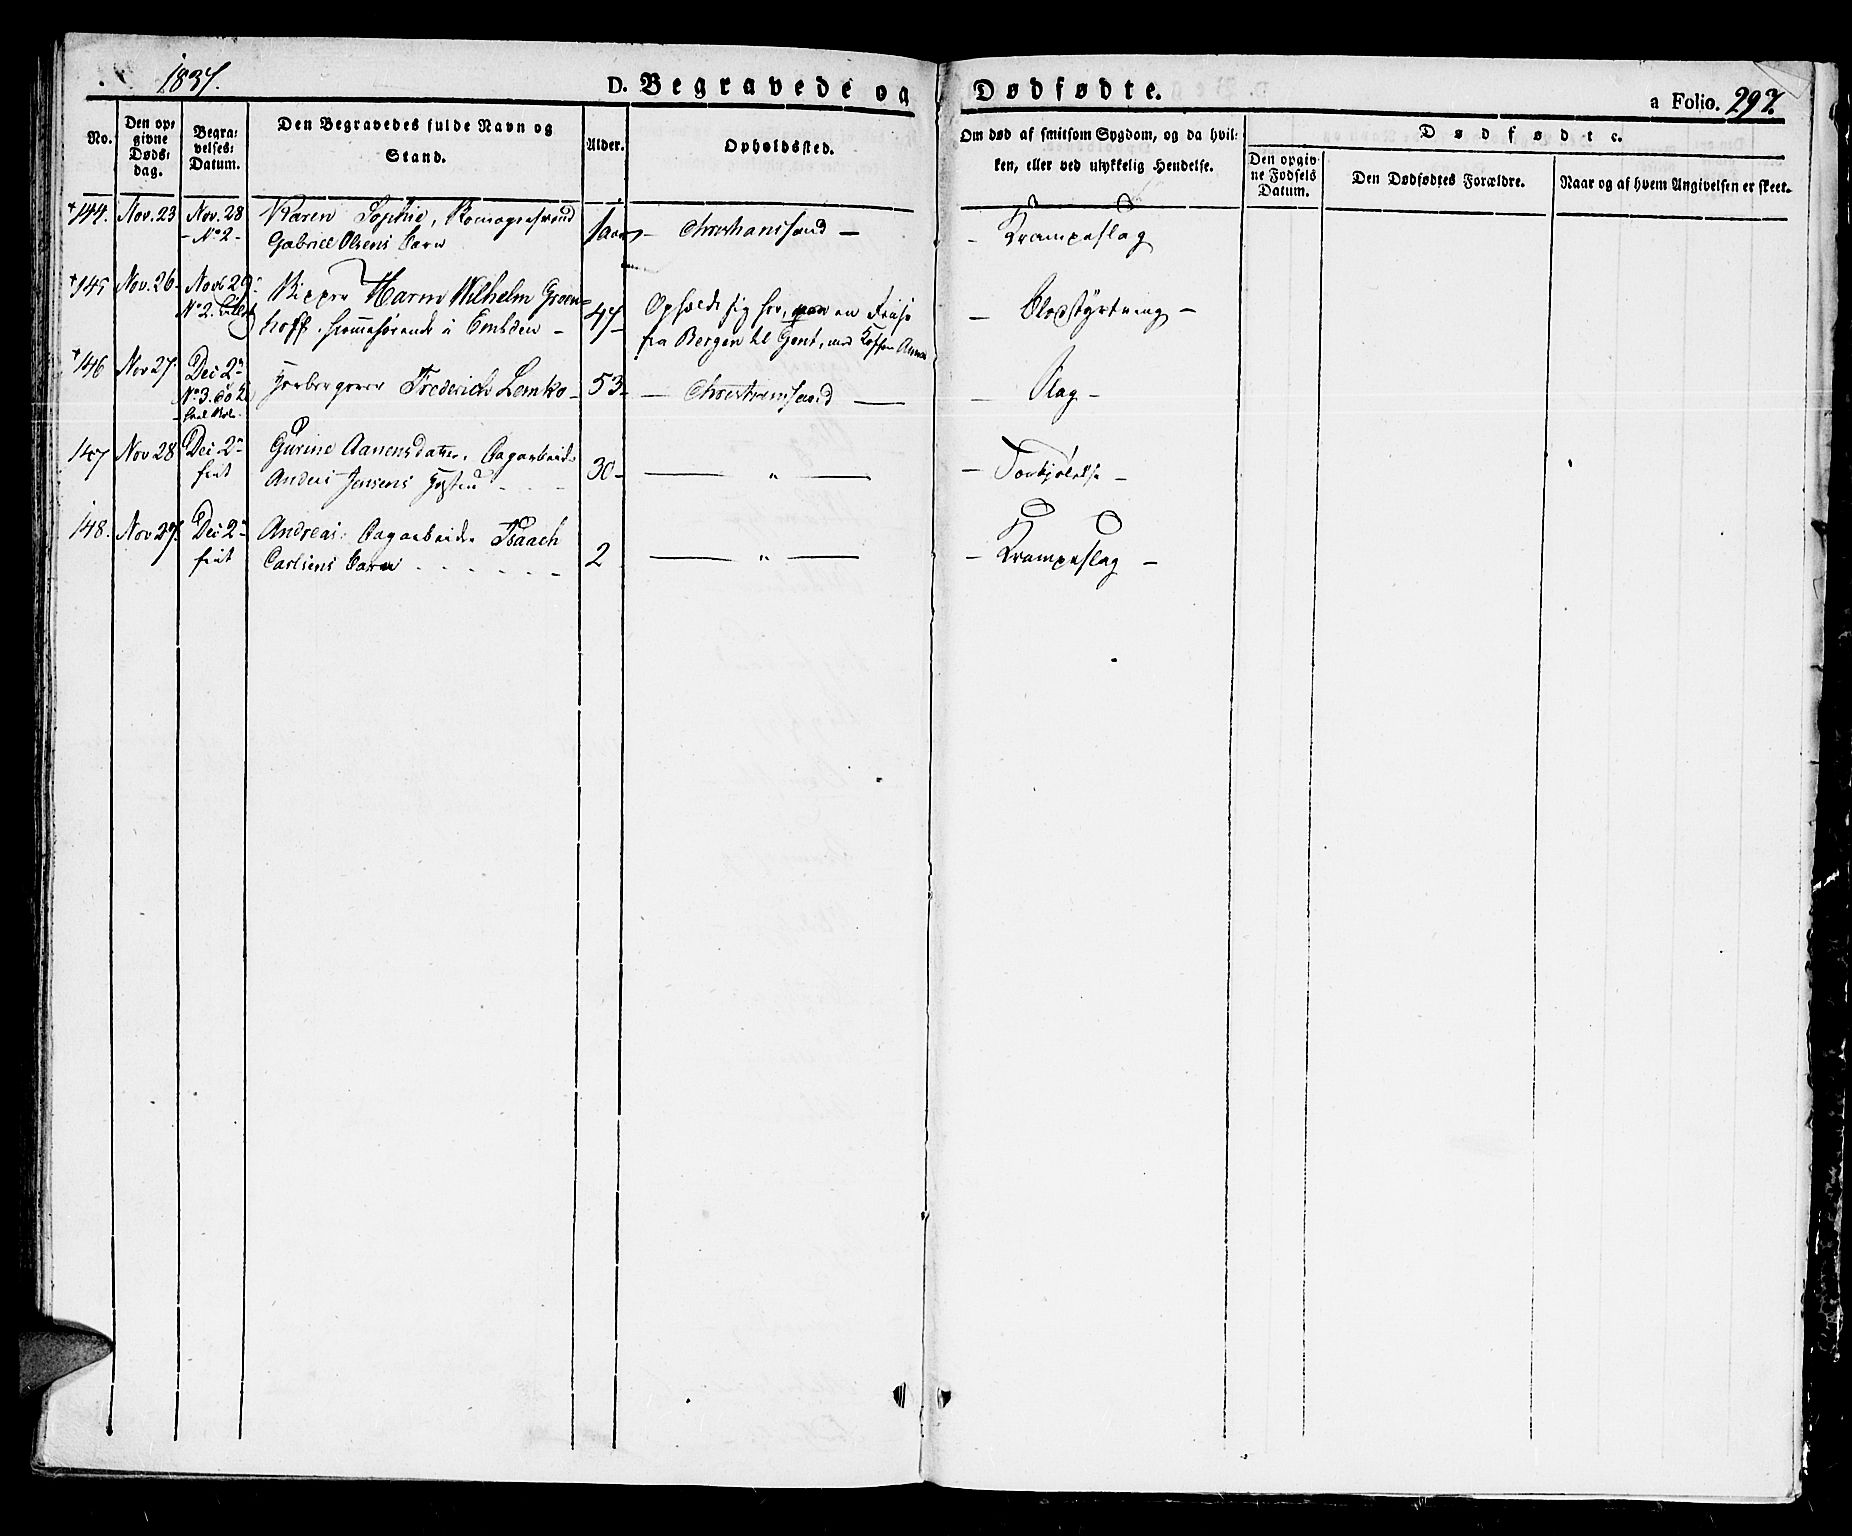 1837.
D. Begravede og Dødfødte.
a Folio. 297.
No.
Den op=
givne
Døds=
dag.
Begra=
velses=
Datum.
Den Begravedes fulde Navn og
Stand.
Alder.
Opholdssted.
Om død af smitsom Sygdom, og da hvil=
ken, eller ved ulykkelig Hendelse.
Dødfødte.
Den opgiv=
ne Fødsels
Datum.
Den Dødfødtes Forældre.
Naar og af hvem Angivelsen er skeet.
144. Nov. 23 Nov. 28
- No 2 -
Karen Sophie,
Gabriel Olsens Barn
1 aar - Christianssand -
- Krampeslag
145 Nov. 26 - Nov. 29
No 2.
Skipper Harm Wilhelm Groen=
hoff. hjemmehørende i Embden -
47 -
Opholdt sig her, paa en Reise
fra Bergen til Gent, med
- Blodstyrtning -
146 Nov 27. Dec 2
No 3.
Frederich Lemko -
53 - - Christianssand -
- Slag -
147 Nov 28 Dec 2
frit
Gurine Aanensdatter. Dagarbeid.
Anders Jensens Hustru - - -
30 - - " -
- Forkjølelse -
148. Nov 27. Dec 2
frit
Andreas. Dagarbeider Isaach
Carlsens Barn - - - - - -
2 - " -
- Krampeslag -